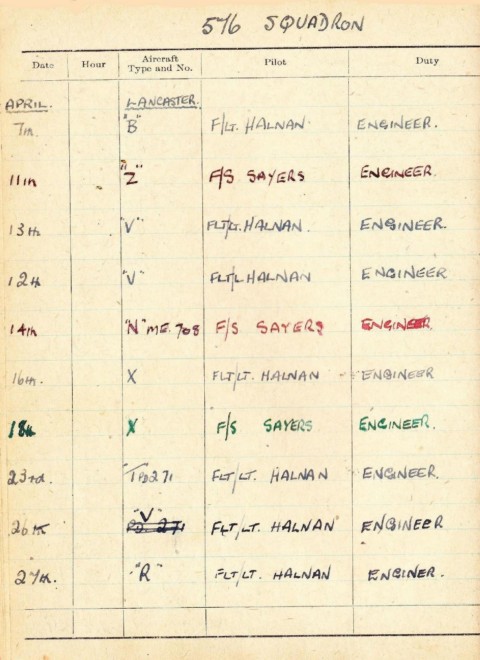 576 SQUADRON
Date Hour Aircraft Type and No. Pilot Duty
APRIL. LANCASTER.
7TH. "B" F/LT. HALNAN. ENGINEER.
11TH "Z" F/S SAYERS ENGINEER.
13TH "V" FLT/LT. HALNAN. ENGINEER.
12TH "V" FLT/L HALNAN ENGINEER
14TH "N" ME. 708 F/S SAYERS ENGINEER.
16TH. X FLT/LT. HALNAN ENGINEER
18TH X F/S SAYERS ENGINEER.
23rd. PD271 FLT/LT. HALNAN ENGINEER.
"V"
26TH PD 271 FLT/LT. HALNAN ENGINEER
27TH. "R" FLT/LT. HALNAN ENGINER.